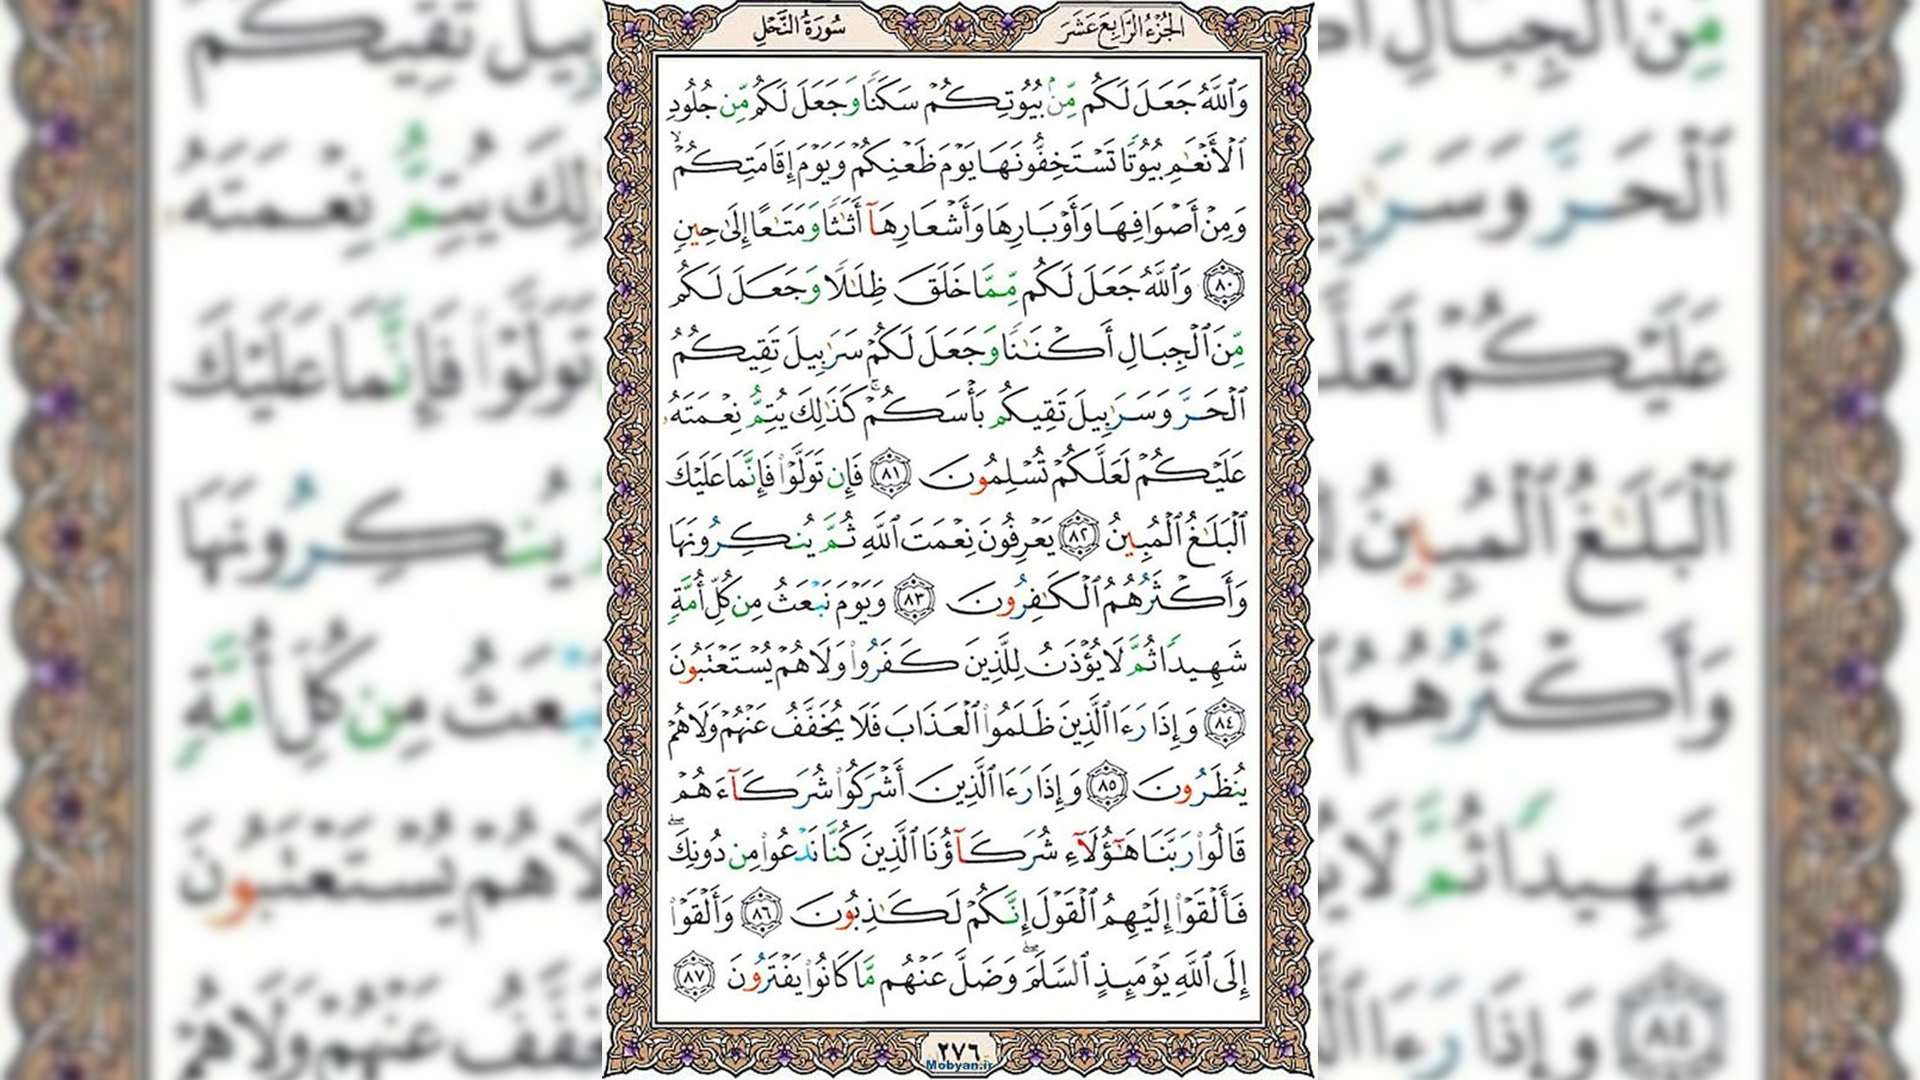 الجُزْءُ الرَّابِعَ عَشَرَ
سُورَةُ النَّحْلِ
وَٱللَّهُ جَعَلَ لَكُم مِّنۢ بُيُوتِكُمْ سَكَنًا وَجَعَلَ لَكُم مِّن جُلُودِ
ٱلْأَنْعَٰمِ بُيُوتًا تَسْتَخِفُّونَهَا يَوْمَ ظَعْنِكُمْ وَيَوْمَ إِقَامَتِكُمْ ۙ
وَمِنْ أَصْوَافِهَا وَأَوْبَارِهَا وَأَشْعَارِهَآ أَثَٰثًا وَمَتَٰعًا إِلَىٰ حِينٍ
﴿٨٠﴾ وَٱللَّهُ جَعَلَ لَكُم مِّمَّا خَلَقَ ظِلَٰلًا وَجَعَلَ لَكُم
مِّنَ ٱلْجِبَالِ أَكْنَٰنًا وَجَعَلَ لَكُمْ سَرَٰبِيلَ تَقِيكُمُ
ٱلْحَرَّ وَسَرَٰبِيلَ تَقِيكُم بَأْسَكُمْ ۚ كَذَٰلِكَ يُتِمُّ نِعْمَتَهُۥ
عَلَيْكُمْ لَعَلَّكُمْ تُسْلِمُونَ ﴿٨١﴾ فَإِن تَوَلَّوْا۟ فَإِنَّمَا عَلَيْكَ
ٱلْبَلَٰغُ ٱلْمُبِينُ ﴿٨٢﴾ يَعْرِفُونَ نِعْمَتَ ٱللَّهِ ثُمَّ يُنكِرُونَهَا
وَأَكْثَرُهُمُ ٱلْكَٰفِرُونَ ﴿٨٣﴾ وَيَوْمَ نَبْعَثُ مِن كُلِّ أُمَّةٍ
شَهِيدًا ثُمَّ لَا يُؤْذَنُ لِلَّذِينَ كَفَرُوا۟ وَلَا هُمْ يُسْتَعْتَبُونَ
﴿٨٤﴾ وَإِذَا رَءَا ٱلَّذِينَ ظَلَمُوا۟ ٱلْعَذَابَ فَلَا يُخَفَّفُ عَنْهُمْ وَلَا هُمْ
يُنظَرُونَ ﴿٨٥﴾ وَإِذَا رَءَا ٱلَّذِينَ أَشْرَكُوا۟ شُرَكَآءَهُمْ
قَالُوا۟ رَبَّنَا هَٰٓؤُلَآءِ شُرَكَآؤُنَا ٱلَّذِينَ كُنَّا نَدْعُوا۟ مِن دُونِكَ ۖ
فَأَلْقَوْا۟ إِلَيْهِمُ ٱلْقَوْلَ إِنَّكُمْ لَكَٰذِبُونَ ﴿٨٦﴾ وَأَلْقَوْا۟
إِلَى ٱللَّهِ يَوْمَئِذٍ ٱلسَّلَمَ ۖ وَضَلَّ عَنْهُم مَّا كَانُوا۟ يَفْتَرُونَ ﴿٨٧﴾
٢٧٦
Mobyan.ir